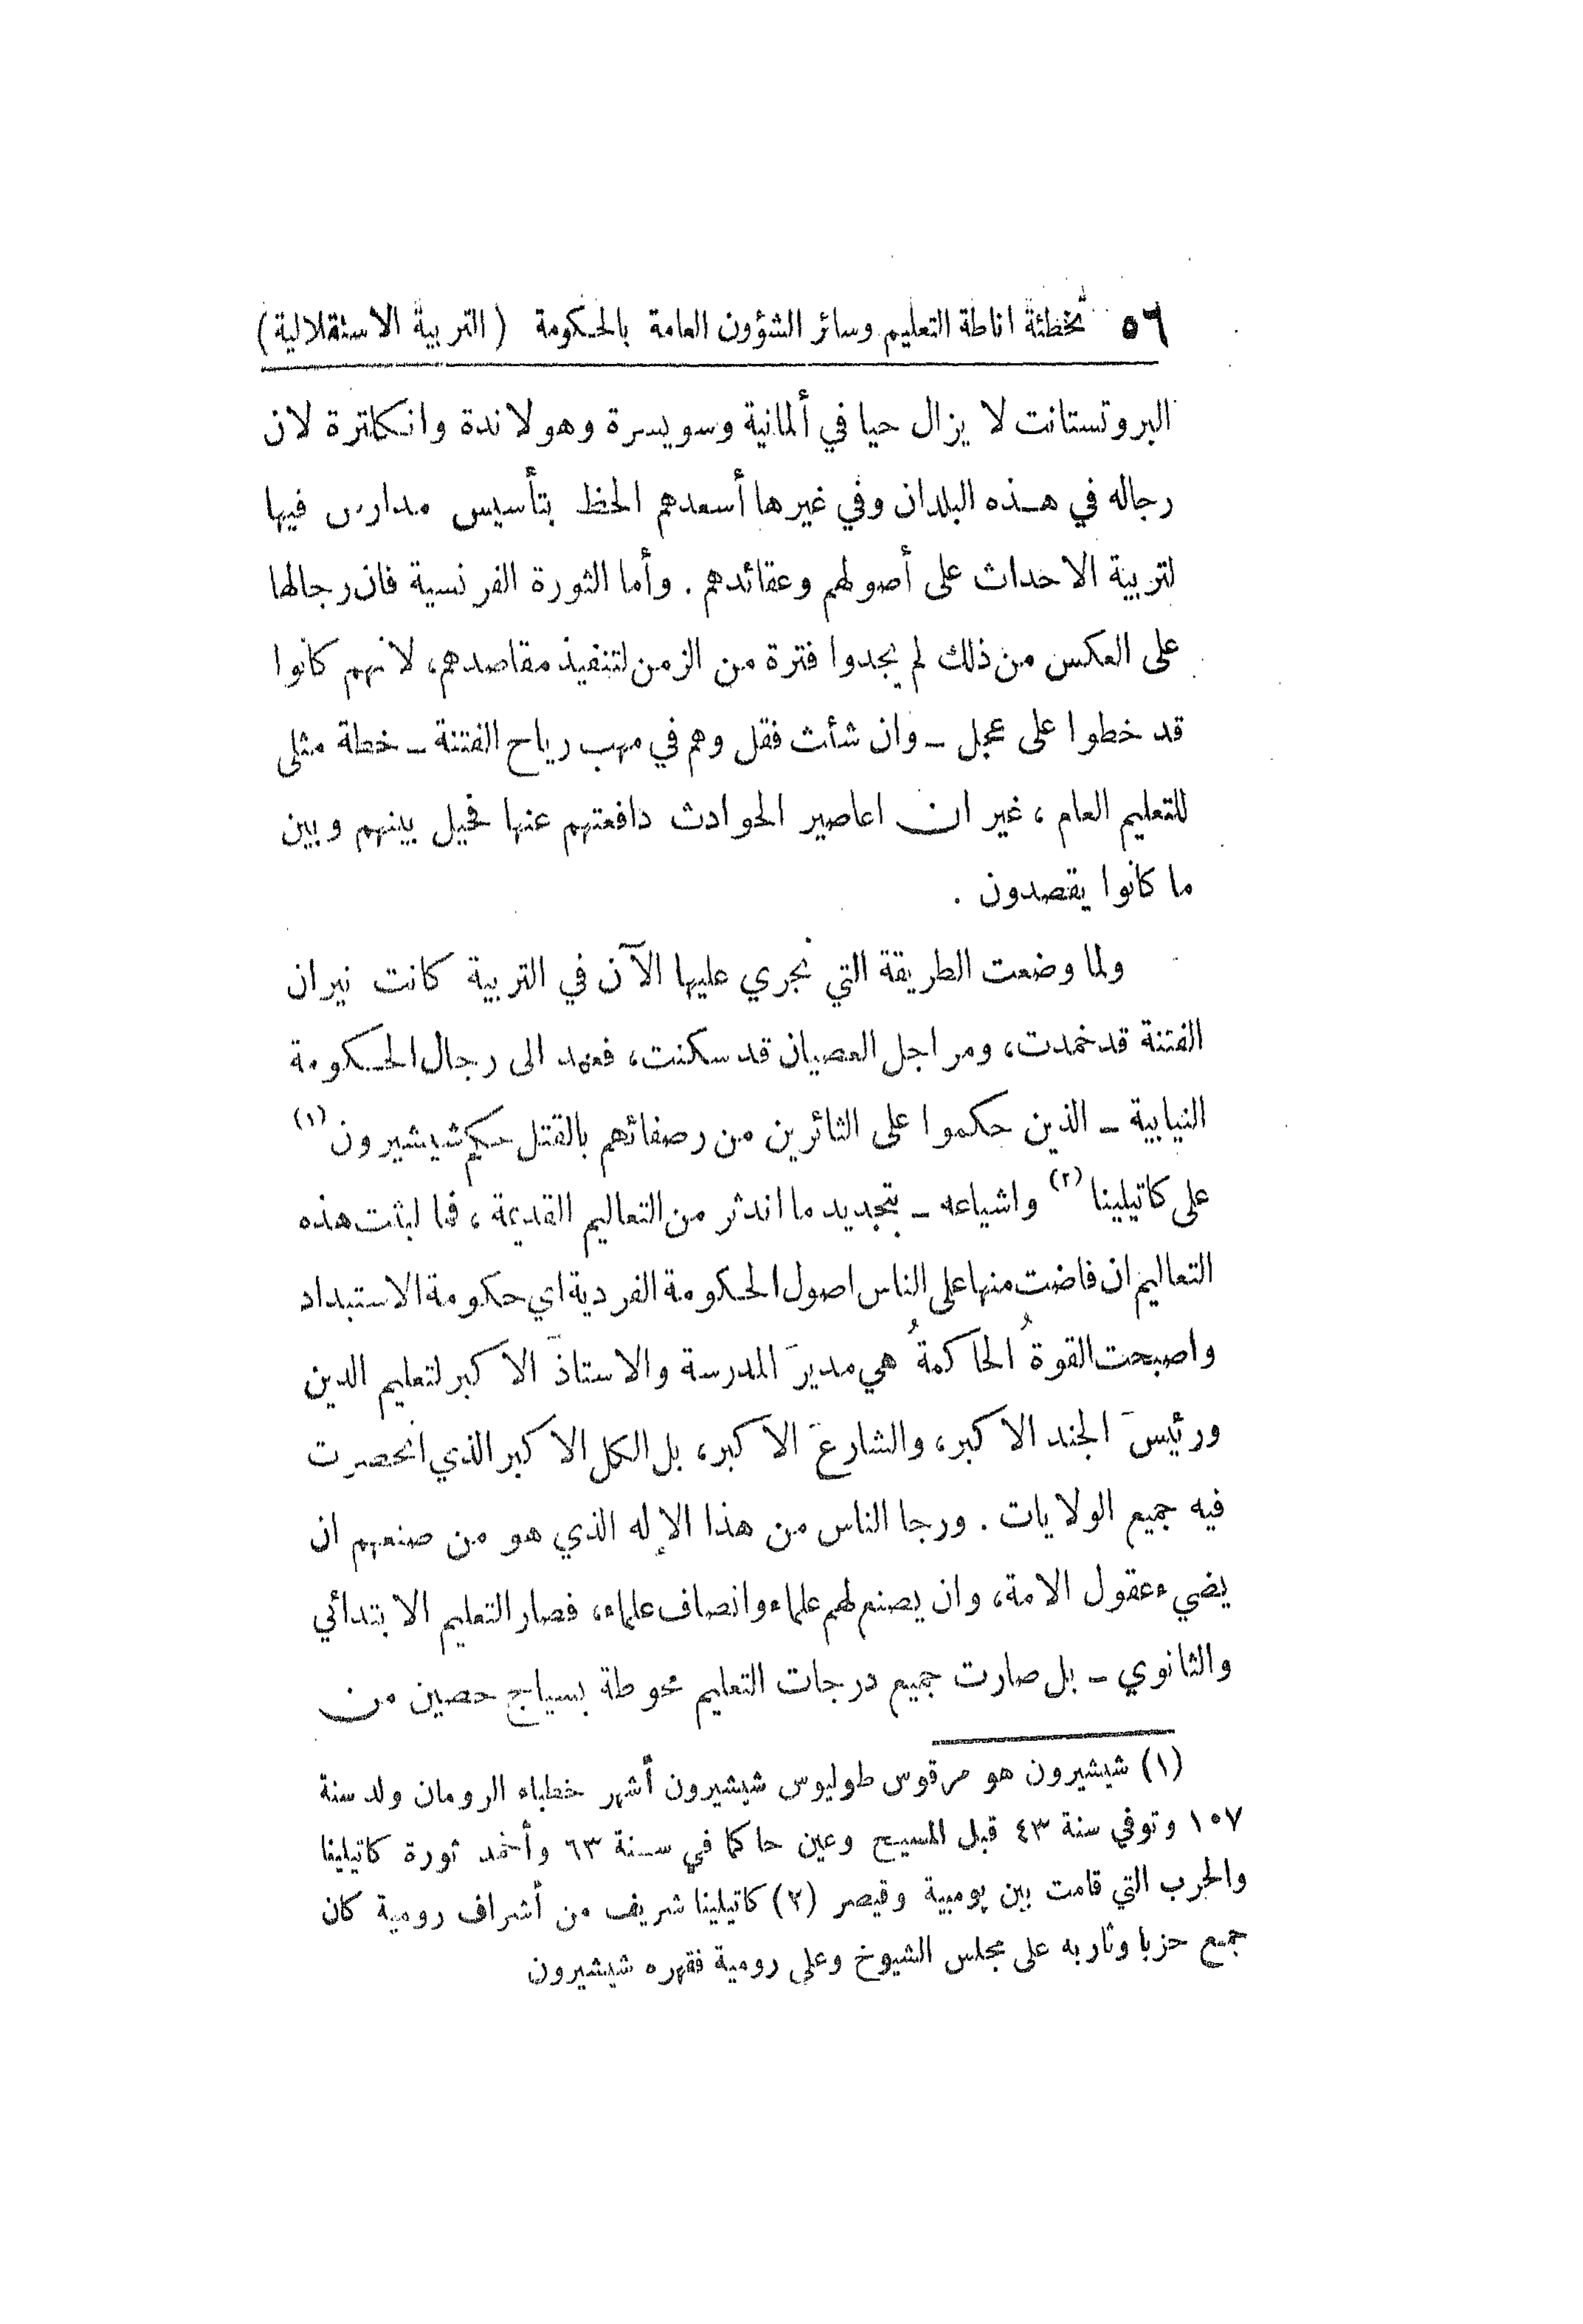 ٥٦ تخطئة اناطة التعليم وسائر الشؤون العامة بالحكومة (التربية الاستقلالية)
البروتستانت لا يزال حيا في ألمانية وسويسرة وهولاندة وانكلترة لان
رجاله في هذه البلدان وفي غيرها أسعدهم الحظ بتأسيس مدارس فيها
لتربية الاحداث على أصولهم وعقائدهم . وأما الثورة الفرنسية فان رجالها
على العكس من ذلك لم يجدوا فترة من الزمن لتنفيذ مقاصدهم، لانهم كانوا
قد خطوا على عجل ــ وان شأت فقل وهم في مهب رياح الفتنة ــ خطة مثلى
للتعليم العام ، غير ان اعاصير الحوادث دافعتهم عنها فحيل بينهم وبين
ما كانوا يقصدون .
ولما وضعت الطريقة التي نجري عليها الآن في التربية كانت نيران
الفتنة قد خمدت، ومراجل العصيان قد سكنت، فعهد الى رجال الحكومة
النيابية ــ الذين حكموا على الثائرين من رصفائهم بالقتل حكم شيشيرون (١)
على كاتيلينا (٢) واشياعه ــ بتجديد ما اندثر من التعاليم القديمة ، فما لبثت هذه
التعاليم ان فاضت منها على الناس اصول الحكومة الفردية اي حكومة الاستبداد
واصبحت القوةُ الحاكمةُ هي مديرَ المدرسة والاستاذَ الاكبر لتعليم الدين
ورئيسَ الجند الاكبر، والشارعَ الاكبر، بل الكل الاكبر الذي انحصرت
فيه جميع الولايات . ورجا الناس من هذا الإله الذي هو من صنعهم ان
يضيء عقول الامة، وان يصنع لهم علماء وانصاف علماء، فصار التعليم الابتدائي
والثانوي ــ بل صارت جميع درجات التعليم محوطة بسياج حصين من
(١) شيشيرون هو مرقوس طوليوس شيشيرون أشهر خطباء الرومان ولد سنة
١٥٧ وتوفي سنة ٤٣ قبل المسيح وعين حاكما في سنة ٦٣ وأخمد ثورة كاتيلينا
والحرب التي قامت بين پومبية وقيصر (٢) كاتيلينا شريف من أشراف رومية كان
جمع حزبا وثار به على مجلس الشيوخ وعلى رومية فقهره شيشيرون